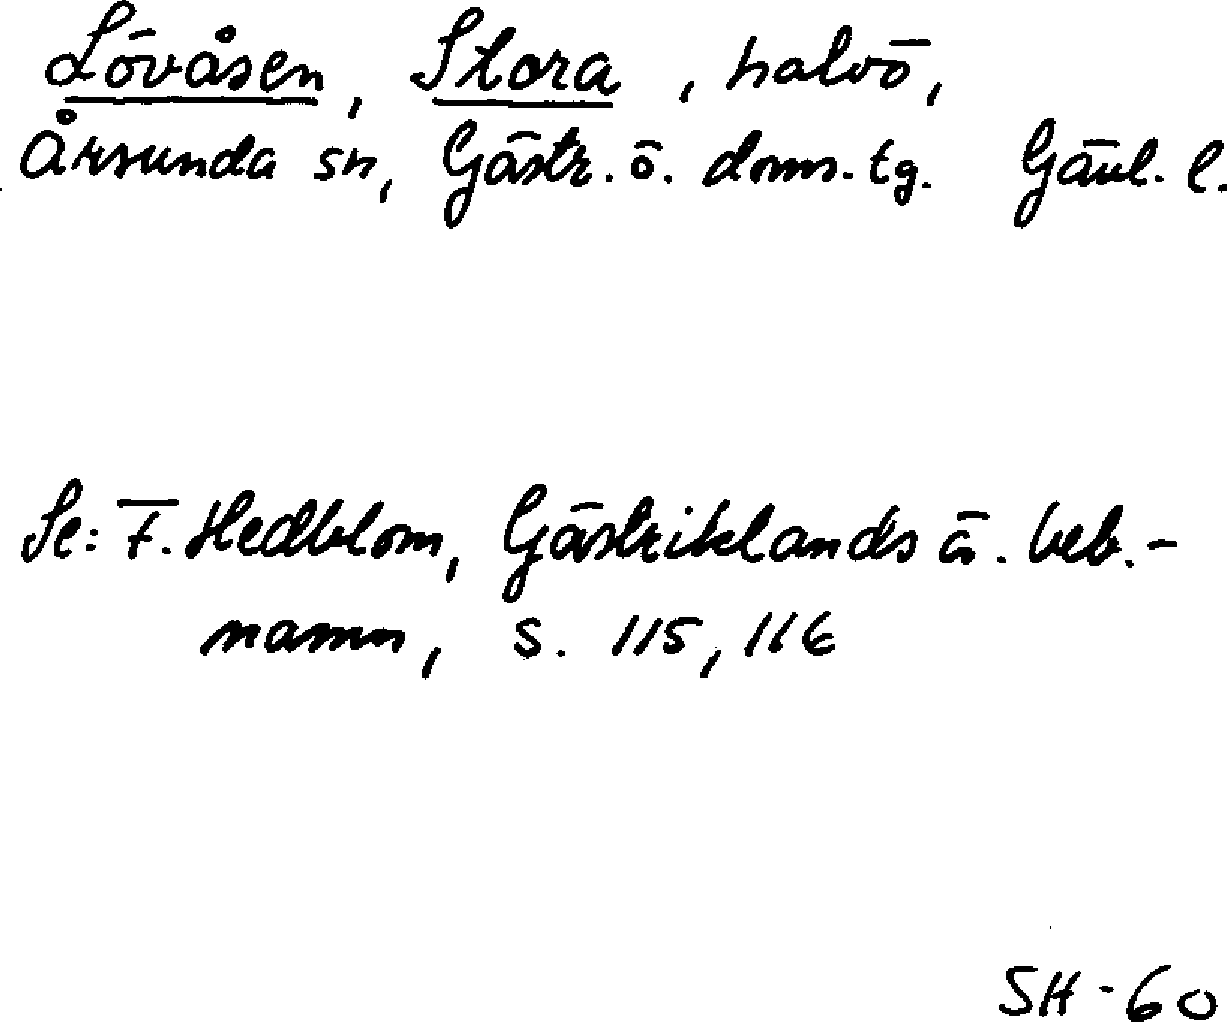 Lövåsen, Stora, halvö,
Årsunda sn, Gästr. ö. doms. tg. Gävl. l.
Se: F. Hedblom, Gästriklands ä. beb.-
namn, s. 115, 116
SH-60